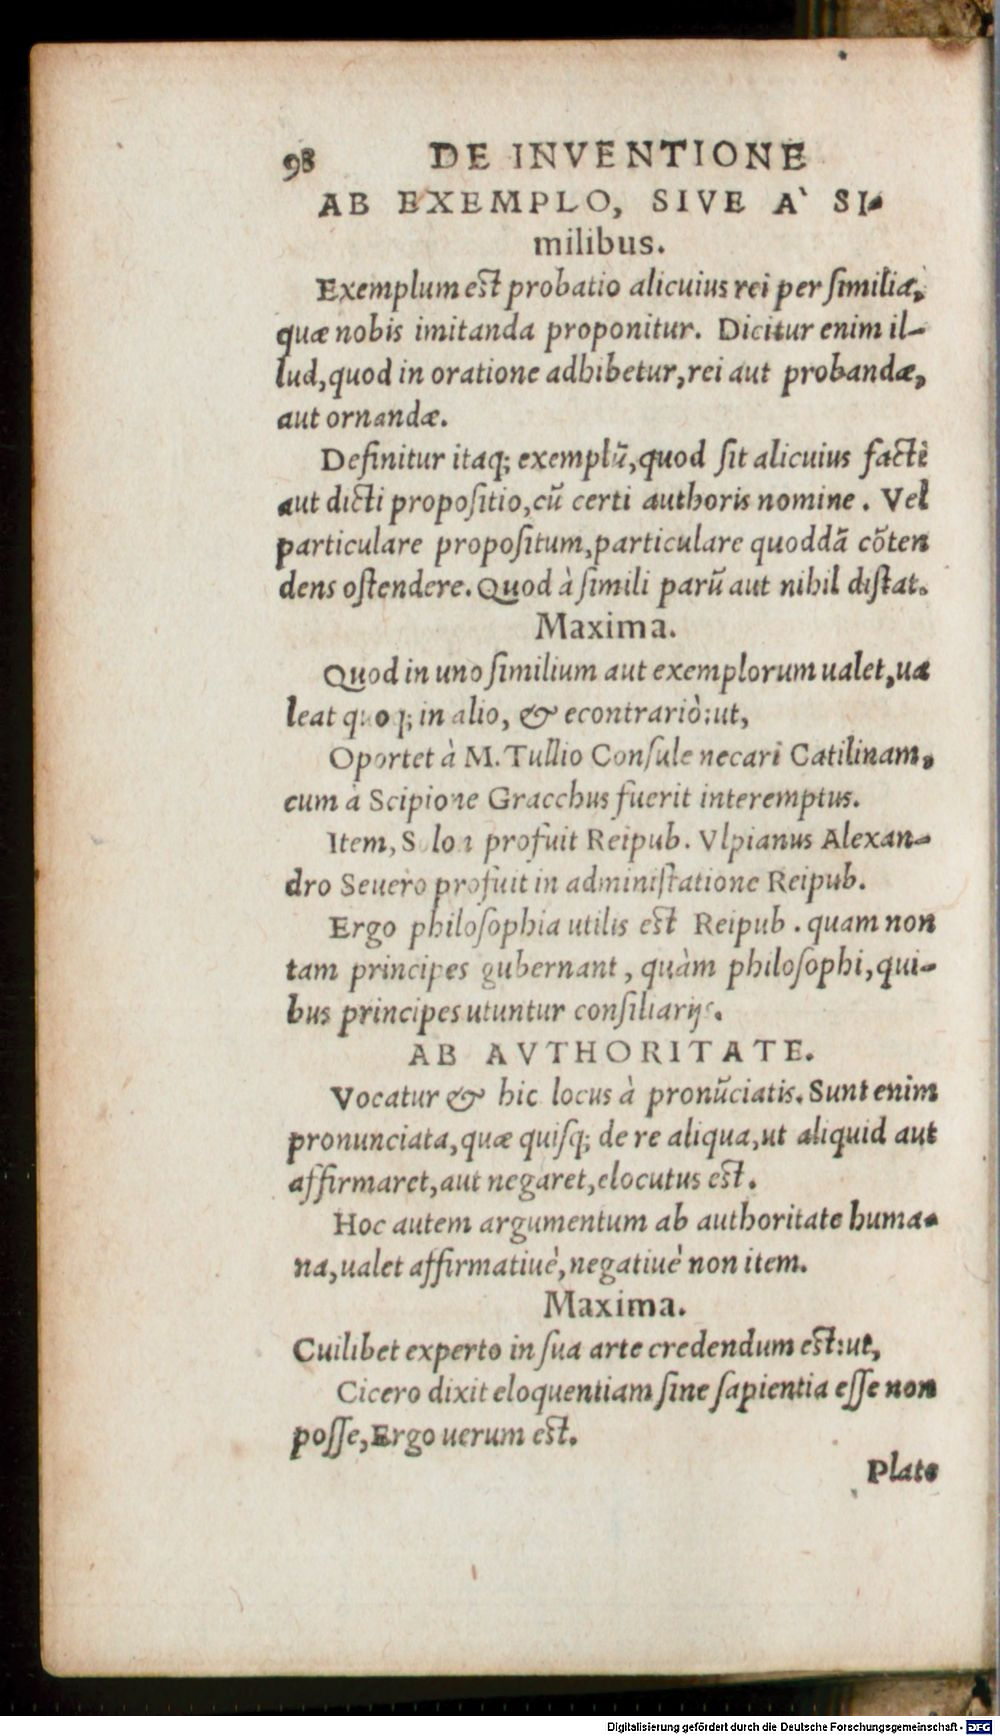 98 DE INVENTIONE
AB EXEMPLO, SIVE A` SI-
milibus.
Exemplum est probatio alicuius rei per similia,
quæ nobis imitanda proponitur. Dicitur enim il-
lud, quod in oratione adhibetur, rei aut probandæ,
aut ornandæ.
Definitur itaq; exemplũ, quod sit alicuius factè
aut dicti propositio, cũ certi authoris nomine. Vel
particulare propositum, particulare quoddã cõten
dens ostendere. Quod à simili parũ aut nihil distat.
Maxima.
Quod in uno similium aut exemplorum ualet, ua
leat quoq; in alio, & econtrariò: ut,
Oportet à M. Tullio Consule necari Catilinam,
cum à Scipione Gracchus fuerit interemptus.
Item, Solon profuit Reipub. Vlpianus Alexan-
dro Seuero profuit in administatione Reipub.
Ergo philosophia utilis est Reipub. quam non
tam principes gubernant, quàm philosophi, qui-
bus principes utuntur consiliarijs.
AB AVTHORITATE.
Vocatur & hic locus à pronũciatis. Sunt enim
pronunciata, quæ quisq; de re aliqua, ut aliquid aut
affirmaret, aut negaret, elocutus est.
Hoc autem argumentum ab authoritate huma-
na, ualet affirmatiuè, negatiuè non item.
Maxima.
Cuilibet experto in sua arte credendum est: ut,
Cicero dixit eloquentiam sine sapientia esse non
posse, Ergo uerum est.
Plato
Digitalisierung gefördert durch die Deutsche Forschungsgemeinschaft - DFG